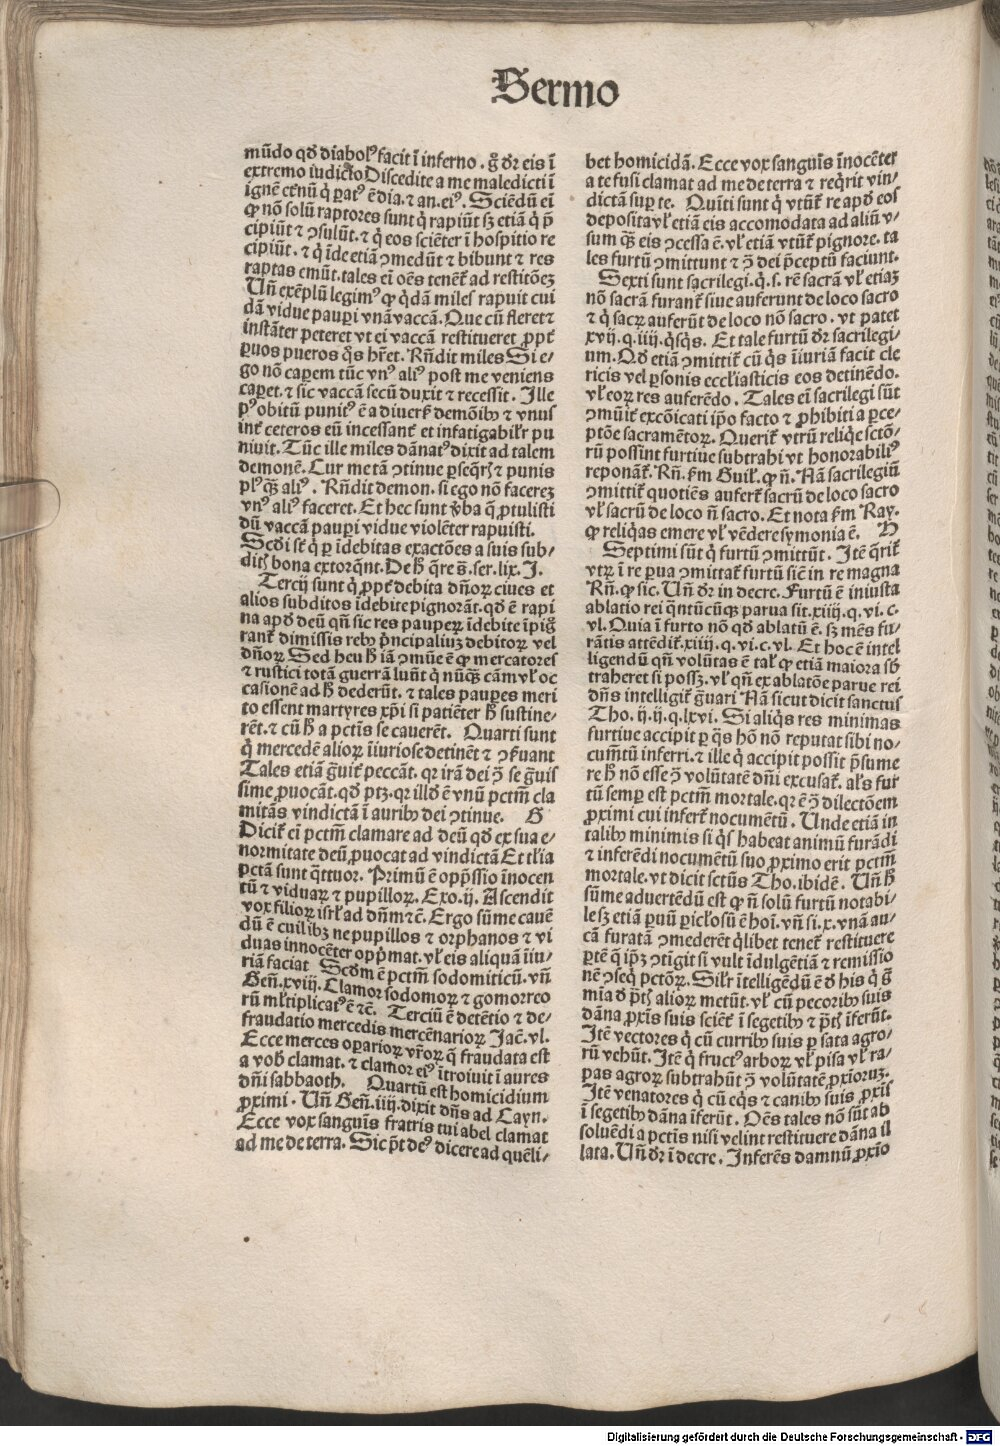 Sermo
mũdo qđ diabolꝰ facit ĩ inferno. gͦ dr̃ eis ĩ
extremo iudicio Discedite a me maledicti ĩ
ignẽ etnũ q̇ ꝑatꝰ ẽ dia. ⁊ an. eiꝰ. Sciẽdũ eĩ
ꝙ nõ solũ raptores sunt q̇ rapiũt sꝫ etiã q̇ p̃
cipiũt ⁊ ꝯsulũt. ⁊ q̇ eos sciẽter ĩ hospitio re
cipiũt. ⁊ q̇ ĩde etiã ꝯmedũt ⁊ bibunt ⁊ res
raptas emũt. tales eĩ oẽs tenẽt᷑ ad restitõeꝫ
Uñ exẽplũ legimꝰ ꝙ q̇dã miles rapuit cui
dã vidue pauꝑi vnã vaccã. Que cũ fleret ⁊
instãter peteret vt ei vaccã restitueret ꝓpt᷑
ꝑuos pueros q̇s hr̃et. Rñdit miles Si e⸗
go nõ caꝑem tũc vnꝰ aliꝰ post me veniens
caꝑet. ⁊ sic vaccã secũ duxit ⁊ recessit. Ille
pꝰ obitũ punitꝰ ẽ a diuers᷑ demõibꝰ ⁊ vnus
int᷑ ceteros eũ incessant᷑ et infatigabilr̃ pu
niuit. Tũc ille miles dãnatꝰ dixit ad talem
demonẽ. Cur me tã ꝯtinue ꝑseq̃ris ⁊ punis
plꝰ q̃ꝫ aliꝰ. Rñdit demon. si ego nõ facereꝫ
vnꝰ aliꝰ faceret. Et hec sunt v̾ba q̃ ꝓtulisti
dũ vaccã pauꝑi vidue violẽter rapuisti.
Scd̓i st᷑ q̇ ꝑ ĩdebitas exactões a suis sub⸗
ditis bona extorq̃nt. De h̾ q̃re s̃. ser. lix. J.
Tercij sunt q̇ ꝓpt᷑ debita dñoꝝ ciues et
alios subditos ĩdebite pignorãt. qđ ẽ rapi
na apđ deũ qñ sic res pauperꝝ ĩdebite ĩpig̃
rant᷑ dimissis rebꝰ p̃ncipaliuꝫ debitorꝝ vel
dñoꝝ Sed heu h̾ iã ꝯmũe ẽ ꝙ mercatores
⁊ rustici totã guerrã luũt q̇ nũq̃ꝫ cãm vl̾ oc
casionẽ ad h̾ dederũt. ⁊ tales pauꝑes meri
to essent martyres xp̃i si patiẽter h̾ sustine⸗
rẽt. ⁊ cũ h̾ a pctĩs se cauerẽt. Quarti sunt
q̇ mercedẽ alioꝝ ĩiuriose detinẽt ⁊ ꝯẞuant
Tales etiã g̃uit᷑ peccãt. qꝛ irã dei ꝯ̃ se g̃uis
sime ꝓuocãt. qđ ptꝫ. qꝛ illđ ẽ vnũ pctm̃ cla
mitãs vindictã ĩ auribꝰ dei ꝯtinue. G
Dicit᷑ eĩ pctm̃ clamare ad deũ qđ ex sua e⸗
normitate deũ ꝓuocat ad vindictã Et tl̾ia
pctã sunt q̃ttuor. Primũ ẽ opp̃ssio ĩnocen
tũ ⁊ viduaꝝ ⁊ pupilloꝝ. Exo. ij. Ascendit
vox filioꝝ isrl̾ ad dñm ⁊c̃. Ergo sũme cauẽ
dũ ẽ cuilibꝫ ne pupillos ⁊ orphanos ⁊ vi
duas innocẽter opp̃mat. vl̾ eis aliquã ĩiu⸗
riã faciat Scđm ẽ pctm̃ sodomiticũ. vñ
Geñ. xviij. Clamor sodomoꝝ ⁊ gomorreo
rũ ml̾tiplicatꝰ ẽ ⁊c̃. Terciũ ẽ detẽtio ⁊ de⸗
fraudatio mercedis mercẽnarioꝝ Jac̃. vl.
Ecce merces oꝑarioꝝ vr̃oꝝ q̃ fraudata est
a vob̾ clamat. ⁊ clamor eiꝰ ĩtroiuit ĩ aures
dñi sabbaoth. Quartũ est homicidium
ꝓximi. Uñ Geñ. iiij. dixit dñs ad Cayn.
Ecce vox sanguĩs fratris tui abel clamat
ad me de terra. Sic p̃t deꝰ dicere ad quẽli⸗
bet homicidã. Ecce vox sanguĩs ĩnocẽter
a te fusi clamat ad me de terra ⁊ req̇rit vin⸗
dictã suꝑ te. Quĩti sunt q̇ vtũt᷑ re apđ eos
deposita vl̾ etiã eis accomodata ad aliũ v⸗
sum q̃ꝫ eis ꝯcessa ẽ. vl̾ etiã vtũt᷑ pignore. ta
les furtũ ꝯmittunt ⁊ ꝯ̃ dei p̃ceptũ faciunt.
Sexti sunt sacrilegi. q̇. s. rẽ sacrã vl̾ etiaꝫ
nõ sacrã furant᷑ siue auferunt de loco sacro
⁊ q̇ sacꝝ auferũt de loco nõ sacro. vt patet
xvij. q. iiij. q̇sq̇s. Et tale furtũ dr̃ sacrilegi⸗
um. Qđ etiã ꝯmittit᷑ cũ q̇s ĩiuriã facit cle
ricis vel ꝑsonis eccl̾iasticis eos detinẽdo.
vl̾ eoꝝ res auferẽdo. Tales eĩ sacrilegi sũt
ꝯmũit᷑ excõicati ip̃o facto ⁊ ꝓhibiti a ꝑce⸗
ptõe sacramẽtoꝝ. Querit᷑ vtrũ reliq̇e sctõ⸗
rũ possĩnt furtiue subtrahi vt honorabiliꝰ
reponãt᷑. Rñ. ẞm Guil̾. ꝙ ñ. Nã sacrilegiũ
ꝯmittit᷑ quotiẽs aufert᷑ sacrũ de loco sacro
vl̾ sacrũ de loco ñ sacro. Et nota ẞm Ray.
ꝙ reliq̇as emere vl̾ vẽdere symonia ẽ. H
Septimi sũt q̇ furtũ ꝯmittũt. Itẽ q̃rit᷑
vtꝝ ĩ re ꝑua ꝯmittat᷑ furtũ sic̃ in re magna
Rñ. ꝙ sic. Uñ dr̃ in decre. Furtũ ẽ iniusta
ablatio rei q̃ntũcũqꝫ parua sit. xiiij. q. vi. c.
vl. Quia ĩ furto nõ qđ ablatũ ẽ. sꝫ mẽs fu⸗
rãtis attẽdit᷑. xiiij. q. vi. c. vl. Et hoc ẽ intel
ligendũ qñ volũtas ẽ tal̾ ꝙ etiã maiora sb̾
traheret si possꝫ. vl̾ qñ ex ablatõe parue rei
dñs intelligit᷑ g̃uari Nã sicut dicit sanctus
Tho. ij. ij. q. lxvi. Si aliq̇s res minimas
furtiue accipit ꝑ q̃s hõ nõ reputat sibi no⸗
cum̃tũ inferri. ⁊ ille q̇ accipit possit p̃sume
re h̾ nõ esse ꝯ̃ volũtatẽ dñi excusat᷑. als̾ fur
tũ semꝑ est pctm̃ mortale. qꝛ ẽ ꝯ̃ dilectõem
ꝓximi cui infert᷑ nocumẽtũ. Unde etiã in
talibꝰ minimis si q̇s habeat animũ furãdi
⁊ inferẽdi nocumẽtũ suo ꝓximo erit pctm̃
mortale. vt dicit sctũs Tho. ibidẽ. Uñ h̾
sũme aduertẽdũ est ꝙ ñ solũ furtũ notabi⸗
le sꝫ etiã ꝑuũ ꝑicl̾osũ ẽ hoĩ. vñ si. x. vnã au⸗
cã furatã ꝯmederẽt q̇libet tenet᷑ restituere
ꝑtẽ q̃ ip̃ꝫ ꝯtigit si vult ĩdulgẽtiã ⁊ remissio
nẽ ꝯseq̇ pctõꝝ. Silr̃ ĩtelligẽdũ ẽ đ his q̇ g̃
mĩa đ p̃tis alioꝝ metũt. vl̾ cũ pecoribꝰ suis
dãna ꝓxĩs suis sciẽt᷑ ĩ segetibꝰ ⁊ p̃tis ĩferũt.
Itẽ vectores q̇ cũ curribꝰ suis ꝑ sata agro⸗
rũ vehũt. Itẽ q̇ fructꝰ arboꝝ vl̾ pisa vl̾ ra⸗
pas agroꝝ subtrahũt ꝯ̃ volũtatẽ ꝓxĩoruꝫ.
Itẽ venatores q̇ cũ eq̇s ⁊ canibꝰ suis ꝓxĩs
ĩ segetibꝰ dãna ĩferũt. Oẽs tales nõ sũt ab
soluẽdi a pctĩs nisi velint restituere dãna il
lata. Uñ dr̃ ĩ decre. Inferẽs damnũ ꝓxĩo
Digitalisierung gefördert durch die Deutsche Forschungsgemeinschaft - DFG